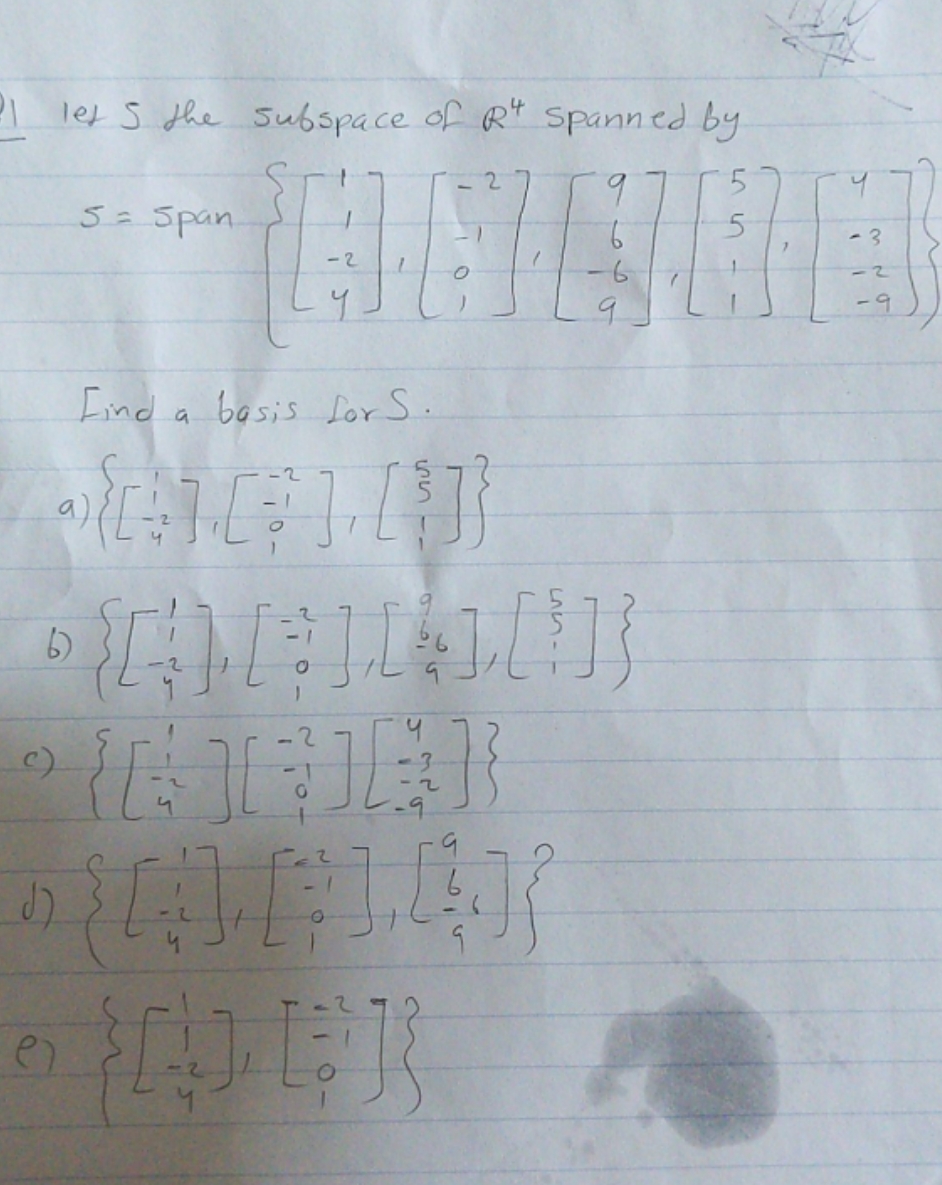 Q1 let S the subspace of R⁴ spanned by
S = span {[1 1 -2 4], [-2 -1 0 1], [9 6 -6 9], [5 5 1 1], [4 -3 -2 -9]}
Find a basis for S.
a) {[1 1 -2 4], [-2 -1 0 1], [5 5 1 1]}
b) {[1 1 -2 4], [-2 -1 0 1], [9 6 -6 9], [5 5 1 1]}
c) {[1 1 -2 4] [-2 -1 0 1] [4 -3 -2 -9]}
d) {[1 1 -2 4], [-2 -1 0 1], [9 6 -6 9]}
e) {[1 1 -2 4], [-2 -1 0 1]}